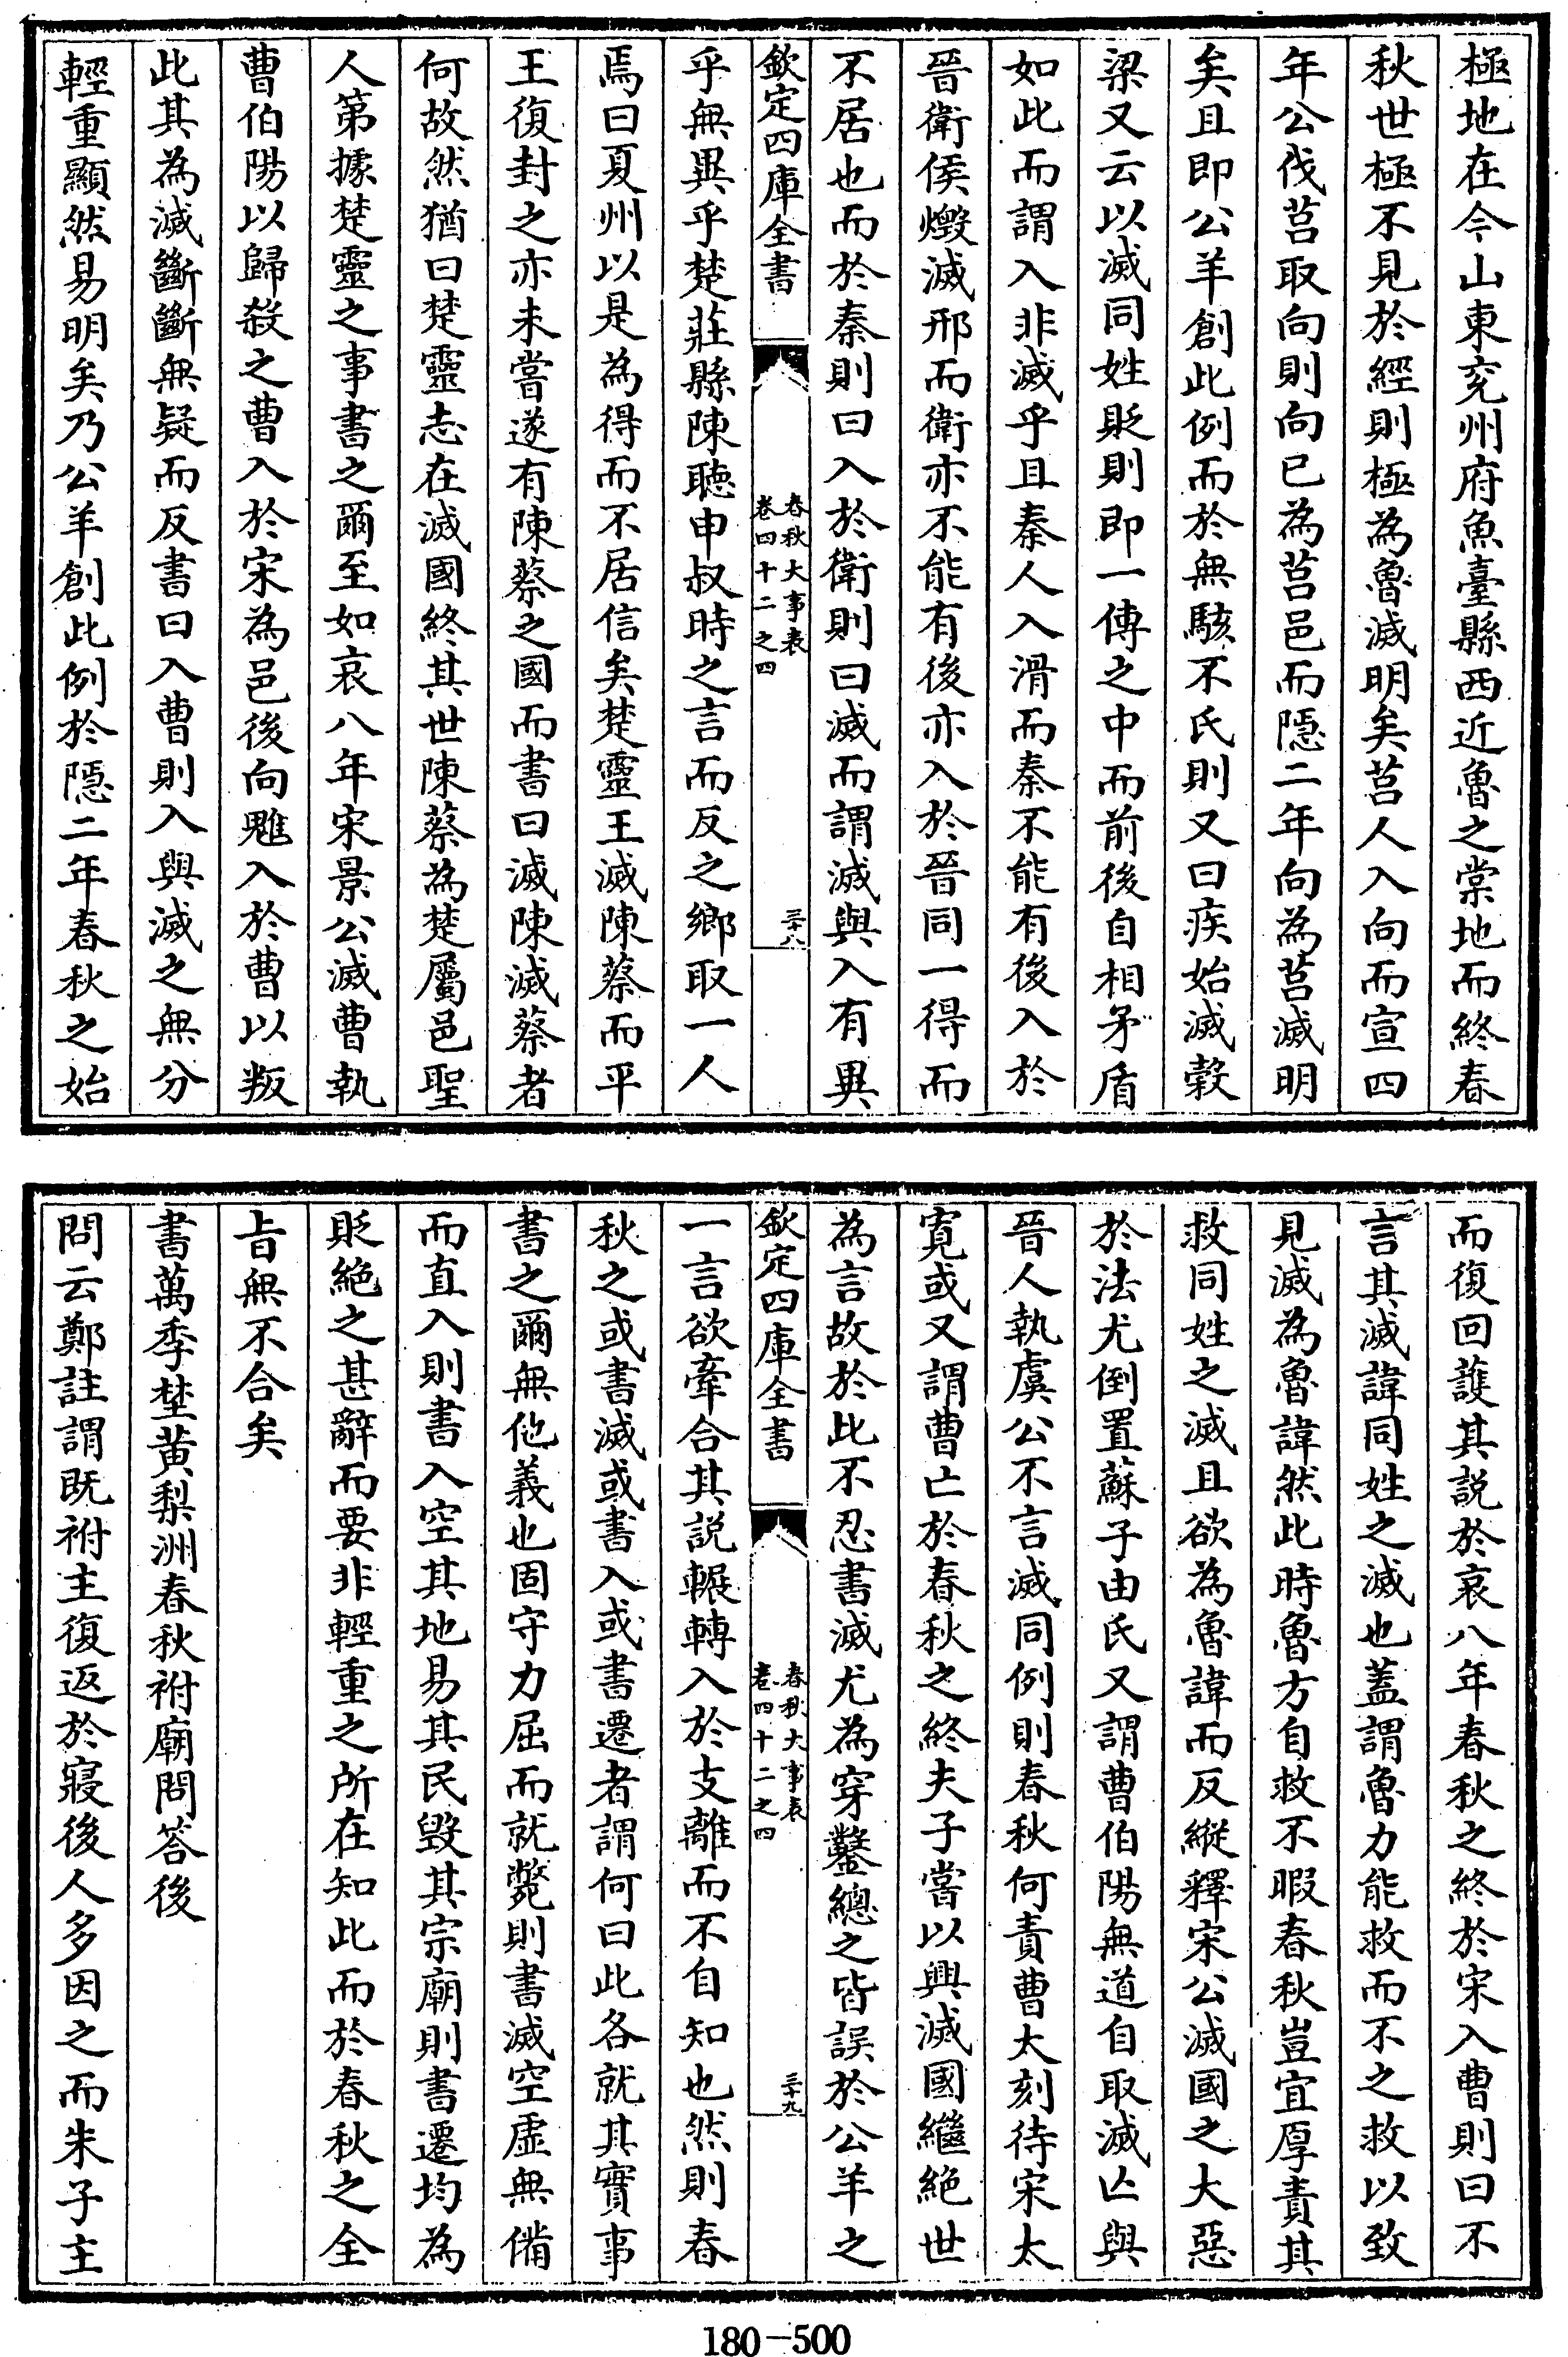 極地在今山東兖州府魚臺縣西近魯之棠地而終春
秋世極不見於經則極為魯滅明矣莒人入向而宣四
年公伐莒取向則向已為莒邑而隱二年向為莒滅明
矣且即公羊創此例而於無駭不氏則又曰疾始滅榖
梁又云以滅同姓貶則即一傳之中而前後自相矛盾
如此而謂入非滅乎且秦人入滑而秦不能有後入於
晉衛侯燬滅邢而衛亦不能有後亦入於晉同一得而
不居也而於秦則曰入於衛則曰滅而謂滅與入有異
欽定四庫全書
春秋大事表
卷四十二之四
三十八
乎無異乎楚莊縣陳聽申叔時之言而反之鄉取一人
焉曰夏州以是為得而不居信矣楚靈王滅陳蔡而平
王復封之亦未嘗遂有陳蔡之國而書曰滅陳滅蔡者
何故然猶曰楚靈志在滅國終其世陳蔡為楚屬邑聖
人第據楚靈之事書之爾至如哀八年宋景公滅曹執
曹伯陽以歸殺之曹入於宋為邑後向魋入於曹以叛
此其為滅斷斷無疑而反書曰入曹則入與滅之無分
輕重顯然易明矣乃公羊創此例於隱二年春秋之始
而復回護其説於哀八年春秋之終於宋入曹則曰不
言其滅諱同姓之滅也蓋謂魯力能救而不之救以致
見滅為魯諱然此時魯方自救不暇春秋豈宜厚責其
救同姓之滅且欲為魯諱而反縱釋宋公滅國之大惡
於法尤倒置蘇子由氏又謂曹伯陽無道自取滅亡與
晉人執虞公不言滅同例則春秋何責曹太刻待宋太
寛或又謂曹亡於春秋之終夫子嘗以興滅國繼絶世
為言故於此不忍書滅尤為穿鑿總之皆誤於公羊之
欽定四庫全書
春秋大事表
卷四十二之四
三十九
一言欲牽合其説輾轉入於支離而不自知也然則春
秋之或書滅或書入或書遷者謂何曰此各就其實事
書之爾無他義也固守力屈而就斃則書滅空虛無備
而直入則書入空其地易其民毁其宗廟則書遷均為
貶絶之甚辭而要非輕重之所在知此而於春秋之全
㫖無不合矣
書萬季埜黄梨洲春秋祔廟問答後
問云鄭註謂既祔主復返於寢後人多因之而朱子主
180-500